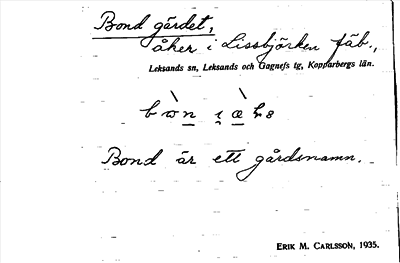 Bond gärdet,
åker i Lissbjörken fäb.,
Leksands sn, Leksands och Gagnefs tg, Kopparbergs län.
Bond är ett gårdsnamn.
ERIK M. CARLSSON, 1935.